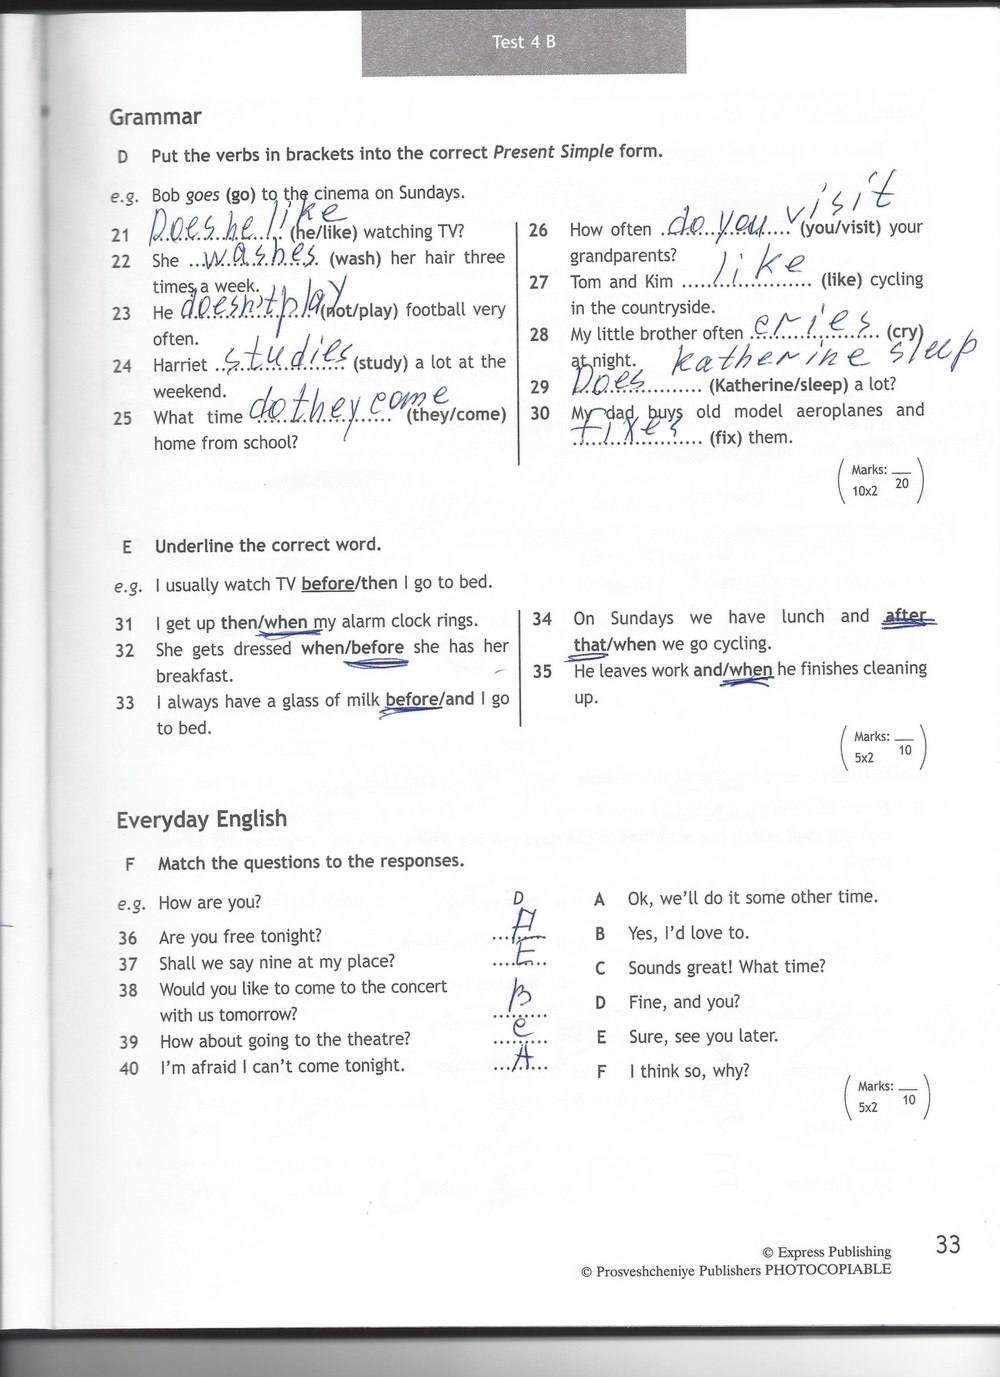 Test 4 B
Grammar
D Put the verbs in brackets into the correct Present Simple form.
e.g. Bob goes (go) to the cinema on Sundays.
21 Does he like (he/like) watching TV?
22 She washes (wash) her hair three
times a week.
23 He doesn't play (not/play) football very
often.
24 Harriet studies (study) a lot at the
weekend.
25 What time do they come (they/come)
home from school?
26 How often do you visit (you/visit) your
grandparents?
27 Tom and Kim like (like) cycling
in the countryside.
28 My little brother often cries (cry)
at night.
29 Does Katherine sleep (Katherine/sleep) a lot?
30 My dad buys old model aeroplanes and
fixes (fix) them.
Marks:
10x2 20
E Underline the correct word.
e.g. I usually watch TV before/then I go to bed.
31 I get up then/when my alarm clock rings.
32 She gets dressed when/before she has her
breakfast.
33 I always have a glass of milk before/and I go
to bed.
34 On Sundays we have lunch and after
that/when we go cycling.
35 He leaves work and/when he finishes cleaning
up.
Marks:
5x2 10
Everyday English
F Match the questions to the responses.
e.g. How are you? D
36 Are you free tonight? F
37 Shall we say nine at my place? E
38 Would you like to come to the concert
with us tomorrow? B
39 How about going to the theatre? C
40 I'm afraid I can't come tonight. A
A Ok, we'll do it some other time.
B Yes, I'd love to.
C Sounds great! What time?
D Fine, and you?
E Sure, see you later.
F I think so, why?
Marks:
5x2 10
© Express Publishing
© Prosveshcheniye Publishers PHOTOCOPIABLE
33